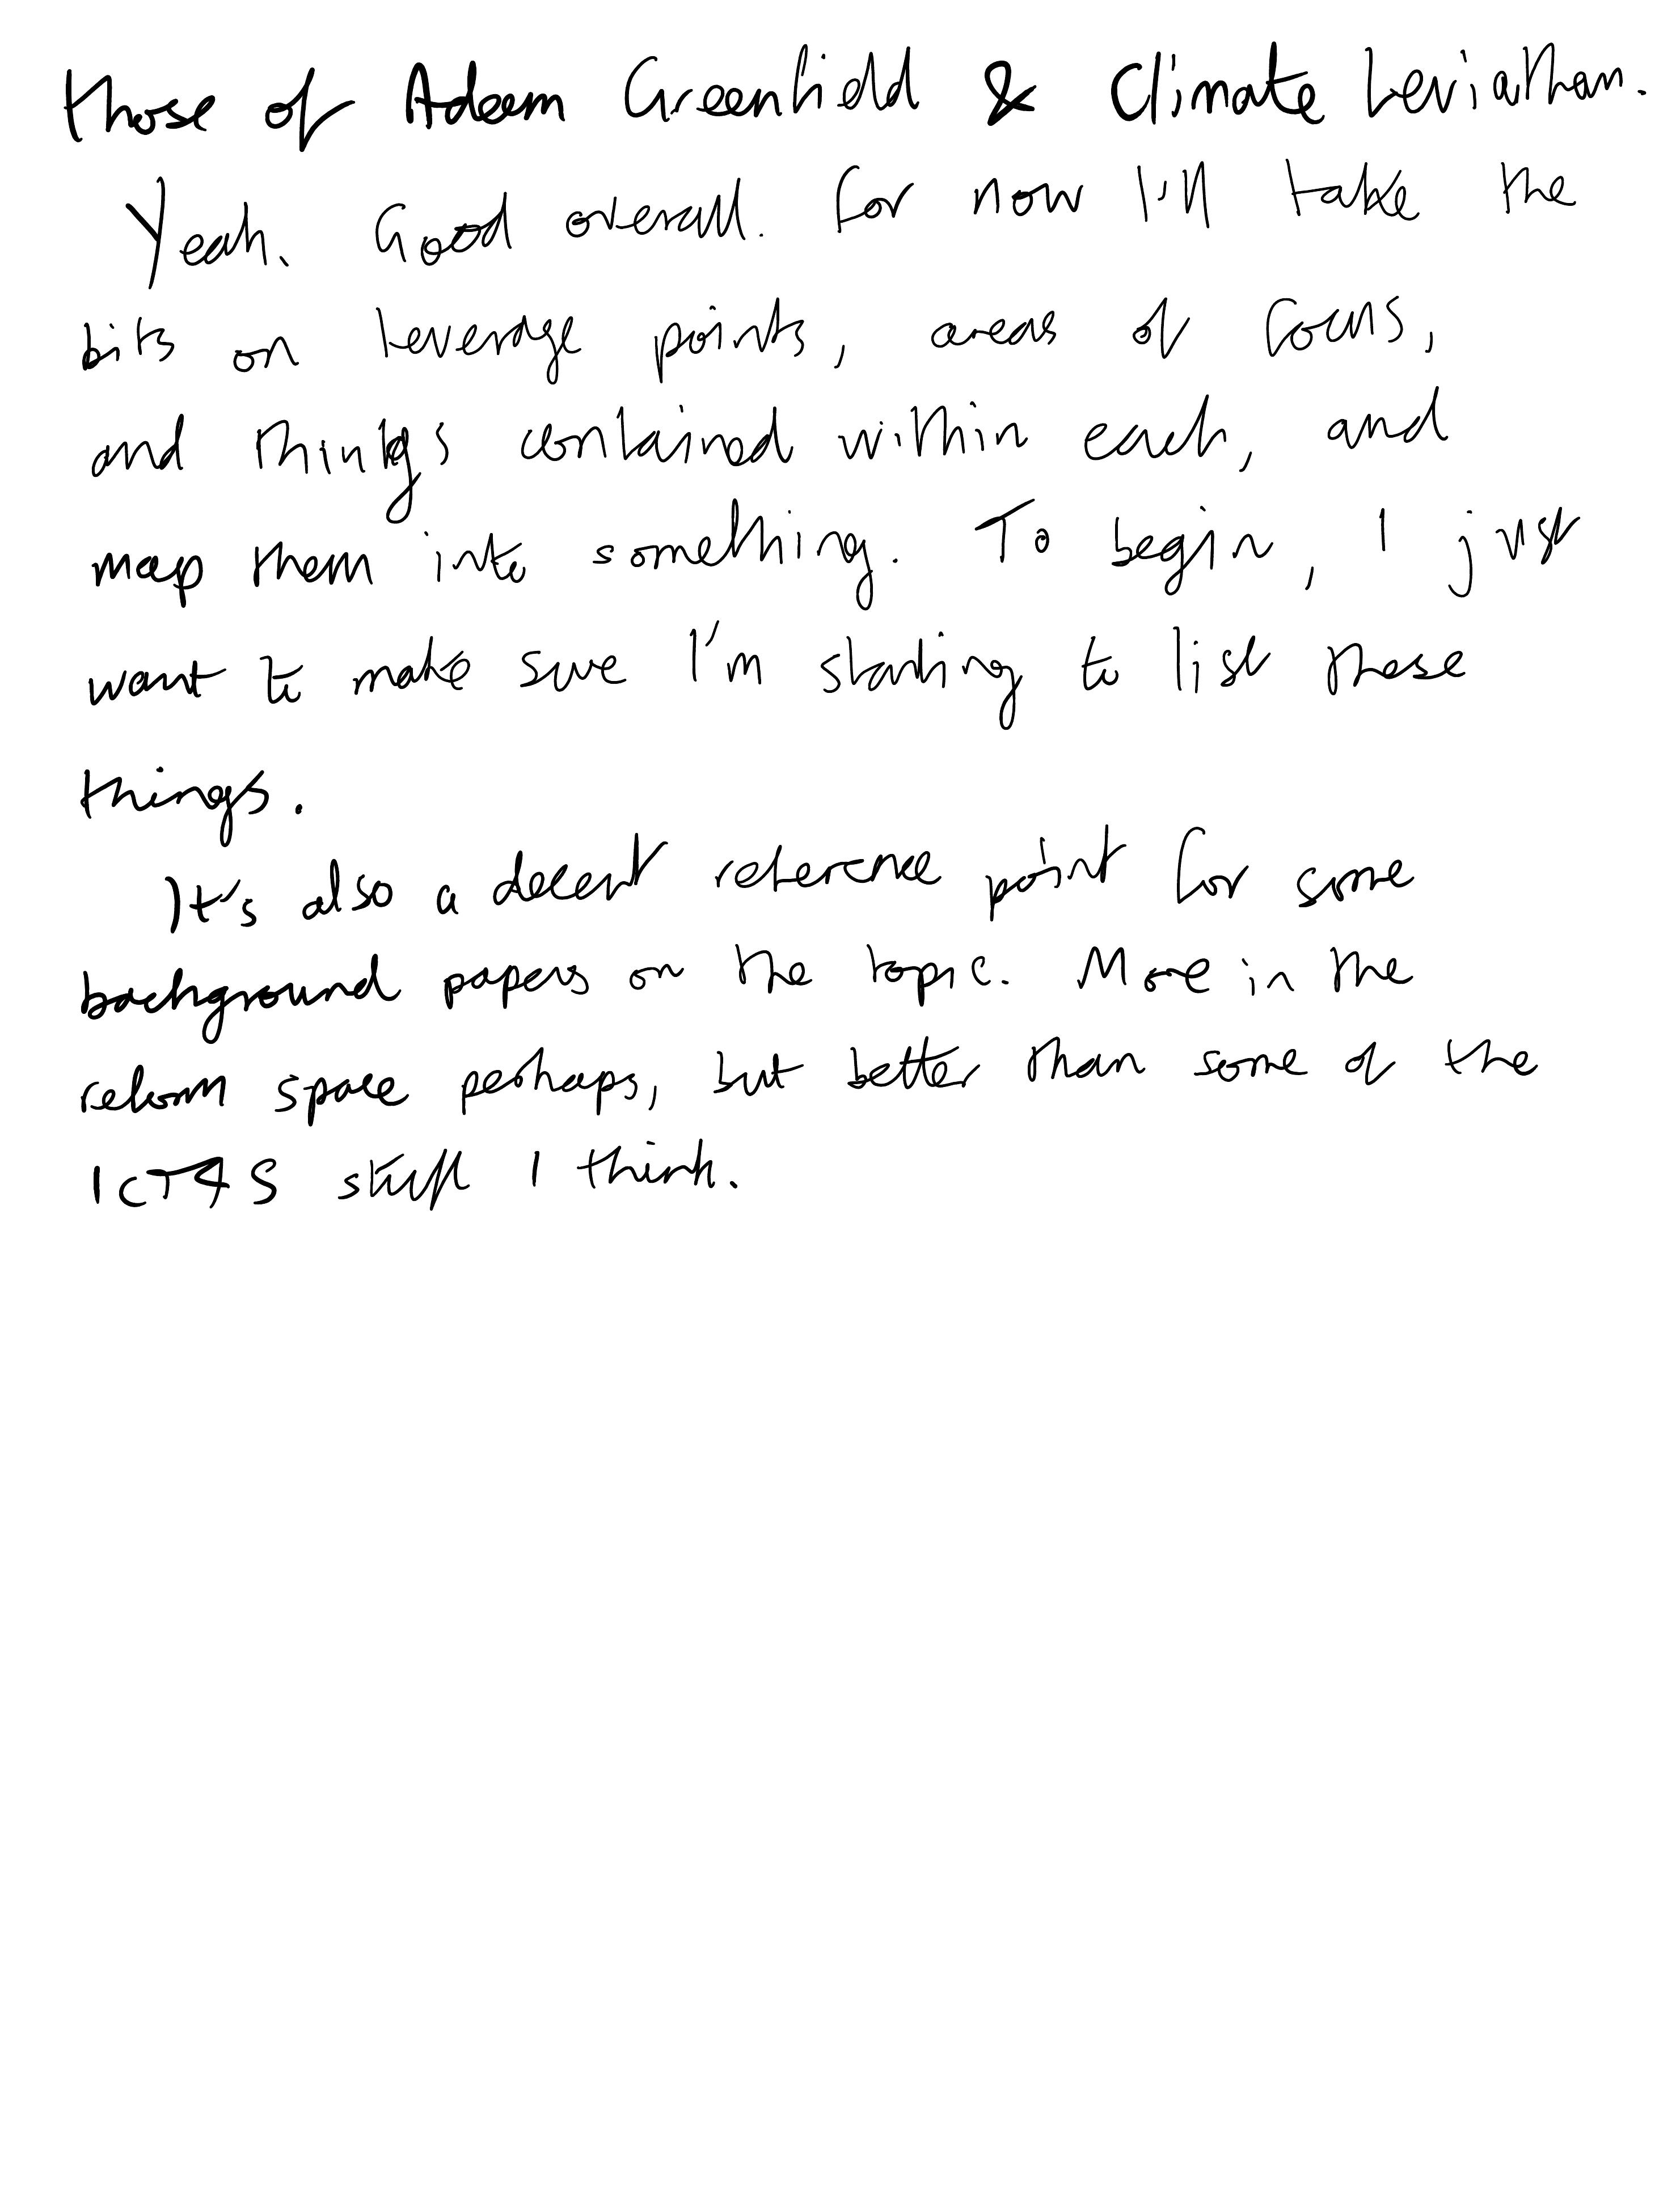 those of Adeem Greenfield & Climate Leviathan.
Yeah. Good overall. For now I'll take the
bits on leverage points, areas of focus,
and things contained within each, and
map them into something. To begin, I just
want to make sure I'm starting to list these
things.
It's also a decent reference point for some
background papers on the topic. More in the
reform space perhaps, but better than some of the
ICT4S stuff I think.